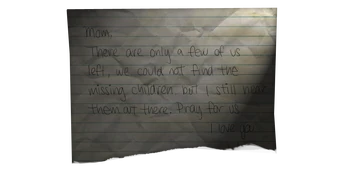 Mom,
There are only a few of us
left, we could not find the
missing children but I still hear
them out there. Pray for us.
I love